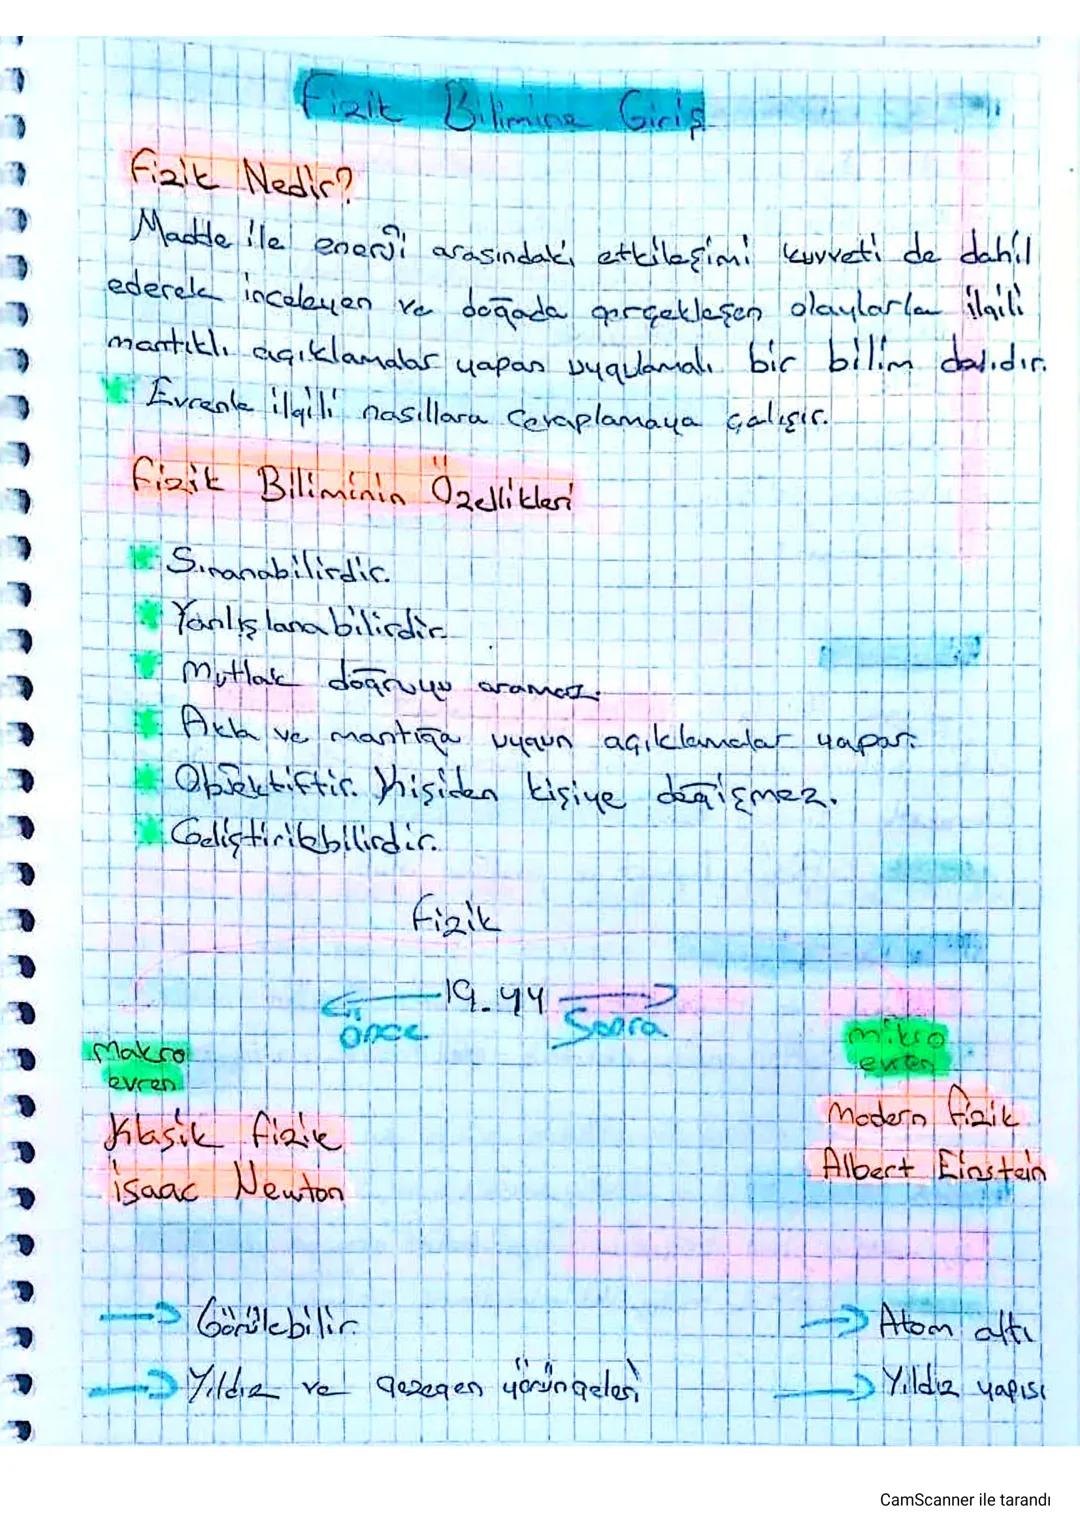 Fizik Bilimine Giriş
Fizik Nedir?
Madde ile enerji arasındaki etkileşimi kuvveti de dahil
ederek inceleyen ve doğada gerçekleşen olaylarla ilgili
mantıklı açıklamalar yapan uygulamalı bir bilim dalıdır.
Evrenle ilgili nasıllara cevaplamaya çalışır.
Fizik Biliminin Özellikleri
Sınanabilirdir.
Yanlışlanabilirdir.
Mutlak doğruyu aramaz.
Akla ve mantığa uygun açıklamalar yapar.
Objektiftir. Kişiden kişiye değişmez.
Geliştirilebilirdir.
Fizik
19. yy
önce Sonra
Makro evren
mikro evren
Klasik fizik
Modern fizik
isaac Newton
Albert Einstein
Görülebilir.
Atom altı
Yıldız ve gezegen yörüngeleri
Yıldız yapısı
CamScanner ile tarandı